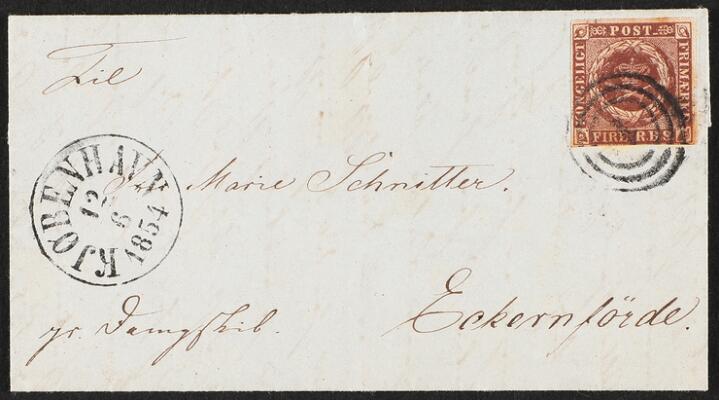 Til
KONGELIGT
POST
FRIMÆRKE
FIRE R.B.S.
KJØBENHAVN
12
6
1854
Marie Schnitter.
Eckernförde.
pr. Dampskib.